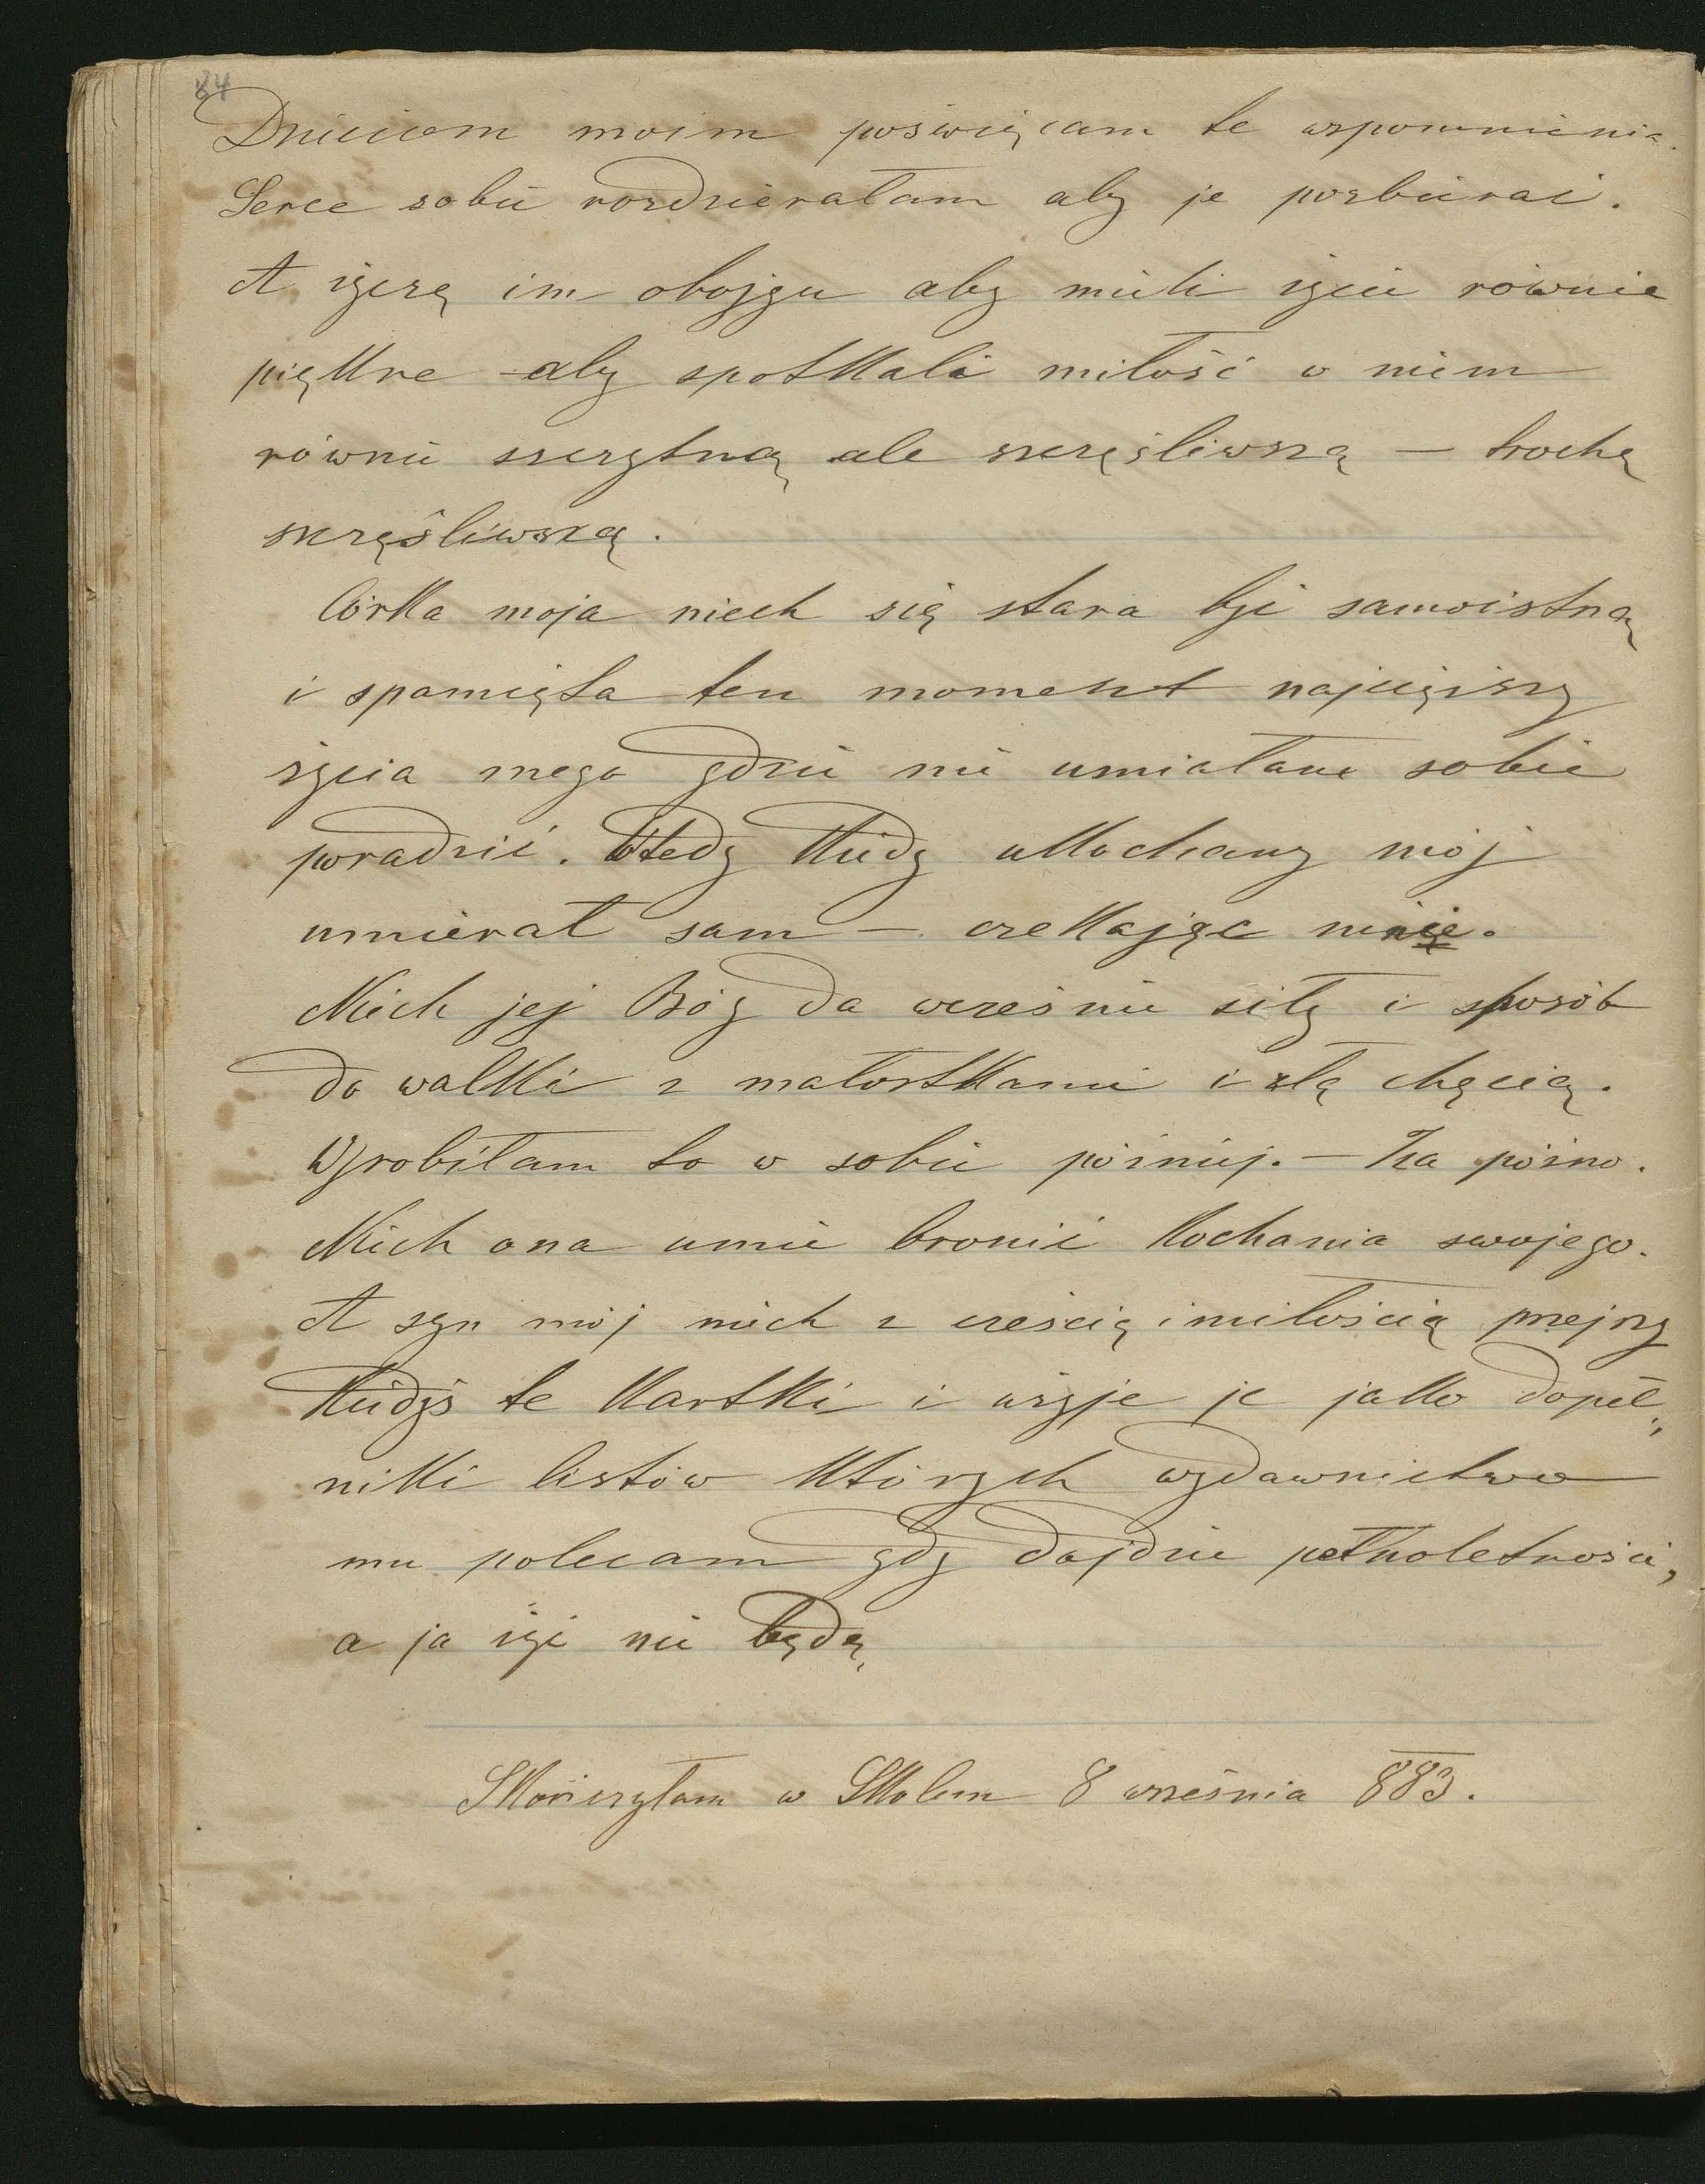 84
Dzieciom moim poświęcam te wspomnienia.
Serce sobie rozdzierałam aby je pozbierać.
A życzę im obojgu aby mieli życie równie
piękne – aby spotkali miłość w niem
równie szczytną ale szczęśliwszą – trochę
szczęśliwszą.
Córka moja niech się stara być samoistną
i spamięta ten moment najcięższy
życia mego gdzie nie umiałam sobie
poradzić. Wtedy kiedy ukochany mój
umierał sam – czekając mnie.
Niech jej Bóg da wcześnie siłę i sposób
do walki z małostkami i złą chęcią.
Wyrobiłam to w sobie później. – Za późno.
Niech ona umie bronić kochania swojego.
A syn mój niech z cześcią i miłością przejrzy
kiedyś te kartki i użyje je jako dopeł„
niki listów których wydawnictwo
mu polecam gdy dojdzie pełnoletności,
a ja żyć nie będę
Skończyłam w Skolem 8 września 883.